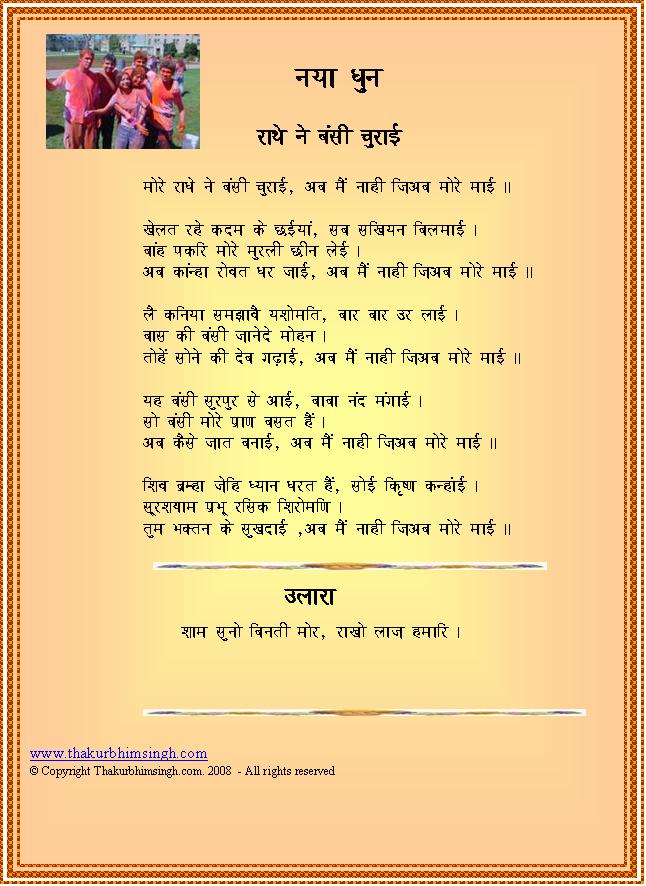 नया धुन
राधे ने बंसी चुराई
मोरे राधे ने बंसी चुराई, अब मैं नाही जिअब मोरे माई ॥
खेलत रहे कदम के छईयां, सब सखियन बिलमाई ।
बांह पकरि मोरे मुरली छीन लेई ।
अब कांन्हा रोवत धर जाई, अब मैं नाही जिअब मोरे माई ॥
लै कनिया समझावै यशोमति, बार बार उर लाई ।
बास की बंसी जानेदे मोहन ।
तोहें सोने की देब गढ़ाई, अब मैं नाही जिअब मोरे माई ॥
यह बंसी सुरपुर से आई, बाबा नंद मंगाई ।
सो बंसी मोरे प्राण बसत हैं ।
अब कैसे जात बनाई, अब मैं नाही जिअब मोरे माई ॥
शिव ब्रम्हा जेहि ध्यान धरत हैं, सोई क्रिष्ण कन्हांई ।
सूरशयाम प्रभू रसिक शिरोमणि ।
तुम भक्तन के सुखदाई ,अब मैं नाही जिअब मोरे माई ॥
उलारा
शाम सुनो बिनती मोर, राखो लाज हमारि ।
www.thakurbhimsingh.com
© Copyright Thakurbhimsingh.com. 2008 - All rights reserved